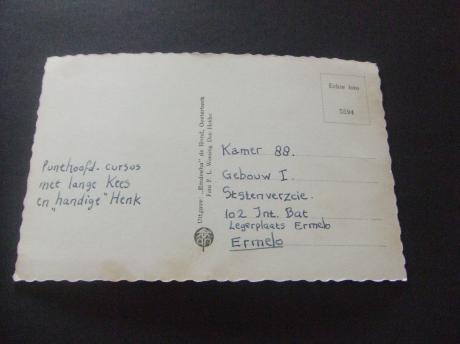 Echte foto
5694
Uitgave: „Rembothu" de Bond, Oosterbeek
Foto P. L. Wansing, Den Helder.
Punthoofd- cursus
met lange Kees
en „handige" Henk
Kamer 88.
Gebouw I.
Ststenverzcie.
102 Int. Bat
Legerplaats Ermelo
Ermelo